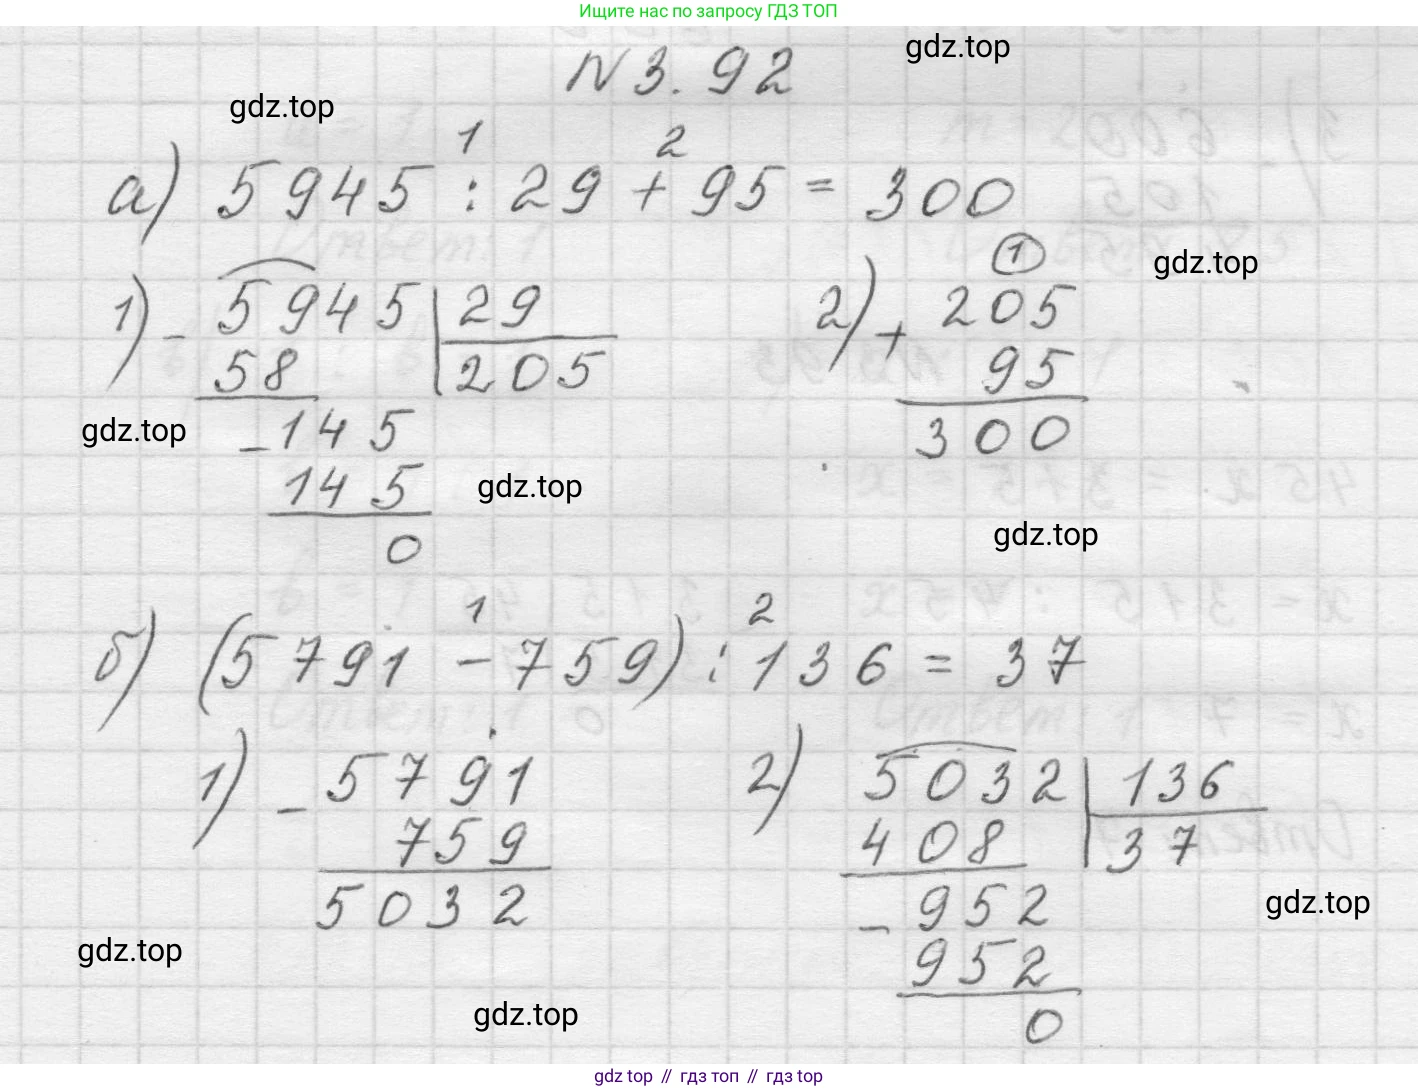 Ищите нас по запросу ГДЗ ТОП
gdz.top
N 3.92
gdz.top
1 2
а) 5945 : 29 + 95 = 300
gdz.top
1) - 5945 | 29
58 205
- 145
145
0
2) 1
+ 205
95
300
gdz.top
gdz.top
gdz.top
1 2
б) (5791 - 759) : 136 = 37
1) - 5791
759
5032
2) 5032 | 136
408 37
- 952
952
0
gdz.top
gdz.top
gdz.top
gdz top // гдз топ // gdz top